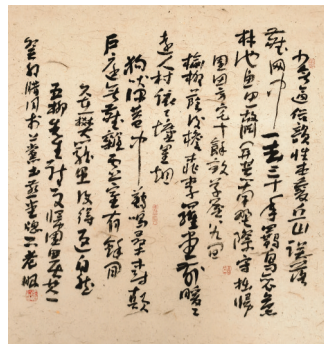 少無適俗韻性本愛丘山誤落
塵網中一去三十年羈鳥戀舊
林池魚思故淵開荒南野際守拙歸
園田方宅十餘畝草屋八九間
榆柳蔭後檐桃李羅堂前曖曖
遠人村依依墟里煙
狗吠深巷中雞鳴桑樹顛
戶庭無塵雜虛室有餘閒
久在樊籠裏復得返自然
五柳先生詩歸園田居其一